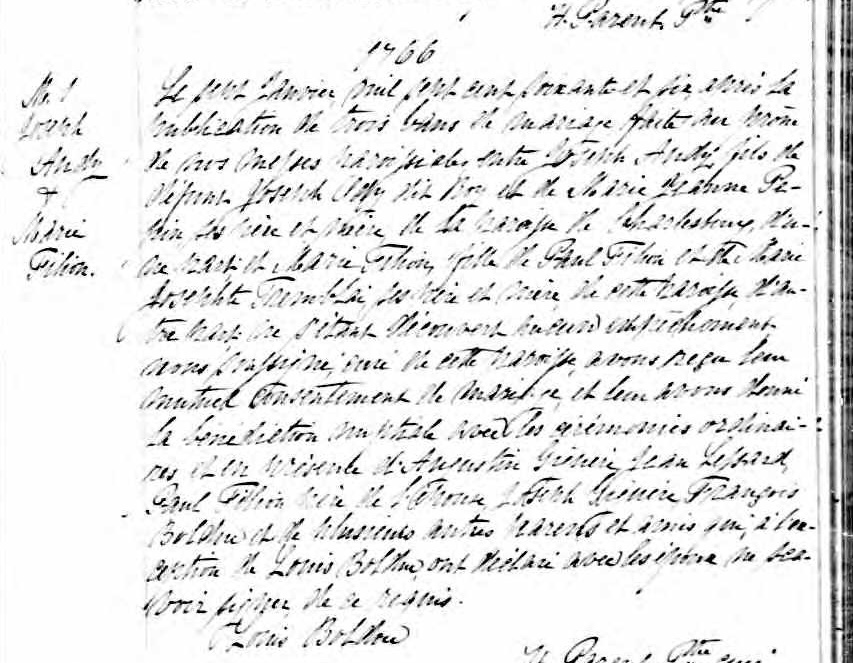 H. Parent Ptre
1766
M. 1
Joseph
Andy
&
Marie
Filion.
Le sept Janvier, mil sept cent soixante et six, après la
publication de trois bans de mariage faite au prône
de nos messes paroissiales entre Joseph Andy, fils de
défunt Joseph dit Roy et de Marie Jeanne Pe-
pin ses père et mère de la paroisse de Charlesbourg, d'u-
ne part et Marie Filion, fille de Paul Filion et de Marie
Josephte Tremblai ses père et mère, de cette paroisse, d'au-
tre part ne s'étant découvert aucun empêchement
nous, soussigné, curé de cette paroisse, avons reçu leur
mutuel consentement de mariage, et leur avons donné
la bénédiction nuptiale avec les cérémonies ordinai-
res, et en présence d'Augustin Jean Lessard,
Paul Filion père de l'épouse, Joseph François
Bolduc et de plusieurs autres parents et amis qui, à l'ex-
ception de Louis Bolduc, ont déclaré avec les époux ne sca-
voir signer, de ce requis.
Louis Bolduc
H. Parent Ptre curé